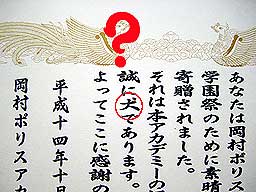 あなたは岡村ポリス
学園祭のために素晴
寄贈されました。
それは本アカデミーの
誠に犬であります。
よってここに感謝の
平成十四年十
岡村ポリスアカ
?